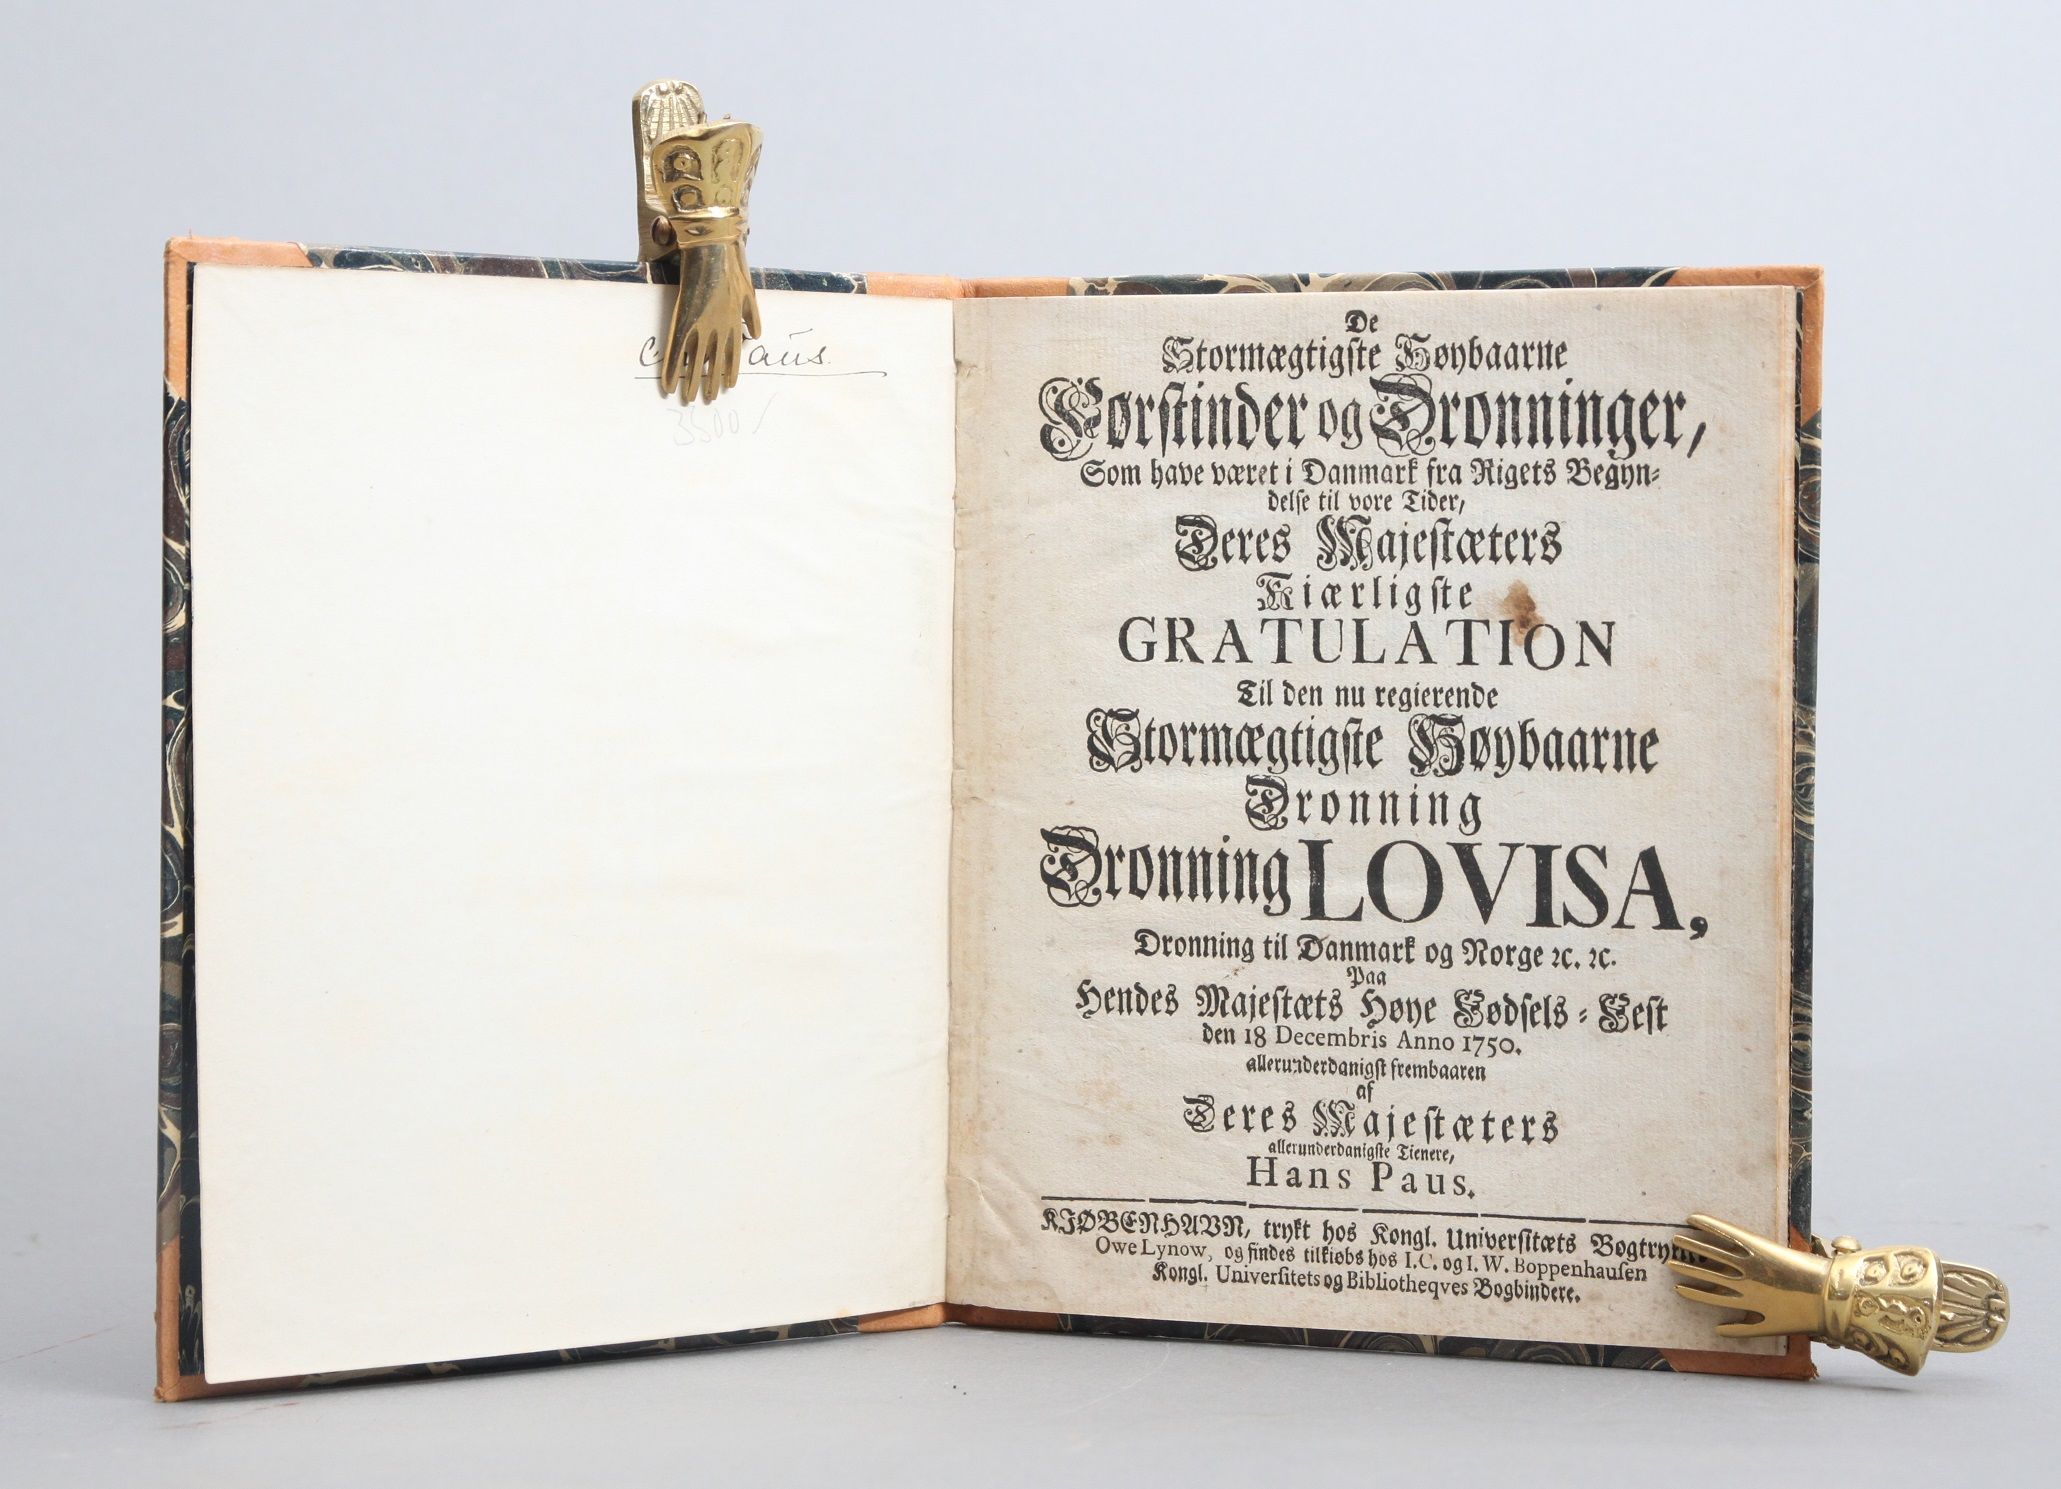 3500/
De
Stormægtigste Høybaarne
Førstinder og Dronninger,
Som have været i Danmark fra Rigets Begyn-
delse til vore Tider,
Deres Majestæters
Kiærligste
GRATULATION
Til den nu regierende
Stormægtigste Høybaarne
Dronning
Dronning LOVISA,
Dronning til Danmark og Norge ꝛc. ꝛc.
Paa
Hendes Majestæts Høye Fødsels-Fest
den 18 Decembris Anno 1750.
allerunderdanigst frembaaren
af
Deres Majestæters
allerunderdanigste Tienere,
Hans Paus.
KIØBENHAVN, trykt hos Kongl. Universitæts
Owe Lynow, og findes tilkiøbs hos I. C. og I. W. Boppenhausen
Kongl. Universitets og Bibliotheqves Bogbindere.